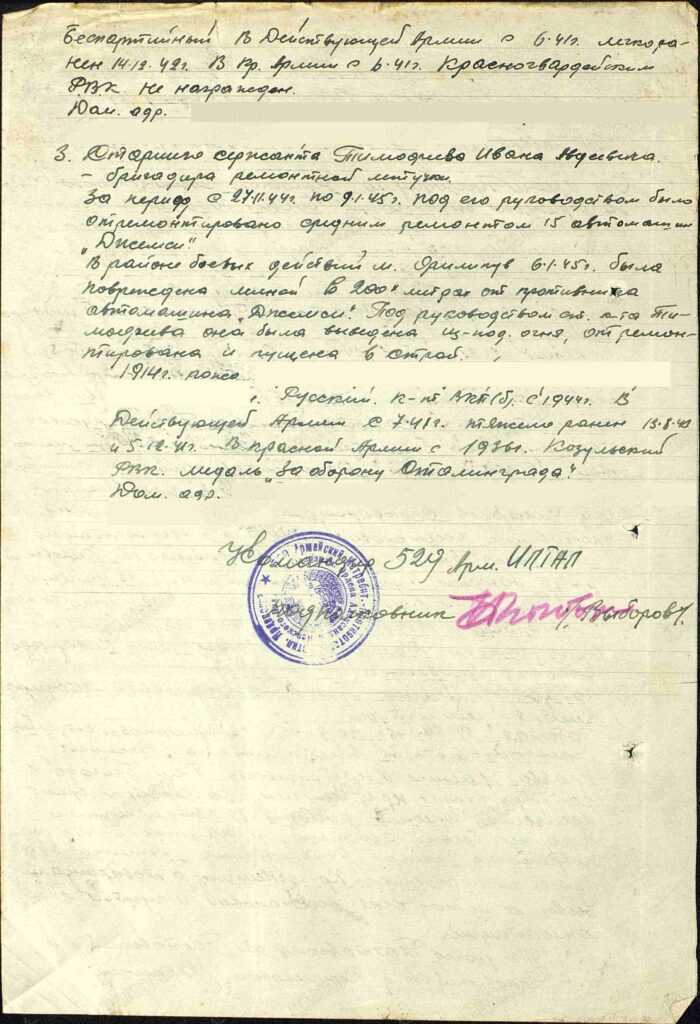 Беспартийный В Действующей Армии с 6.41г. легко ра-
нен 14.12.42г. В Кр. Армии с 6.41г. Красногвардейским
РВК не награжден.
Дом. адр.
3. Старшего сержанта Тимофеева Ивана Авдеевича.
- бригадира ремонтной летучки.
За период с 27.11.44г. по 9.1.45г. под его руководством было
отремонтировано средним ремонтом 15 автомашин
„Джемси".
В районе боевых действий м. 6.1.45г. была
повреждена миной в 200х метрах от противника
автомашина „Джемси". Под руководством ст. с-та Ти-
мофеева она была выведена из-под огня, отремон-
тирована и пущена в строй.
1914г. рожд.
г. Русский. к-т ВКП(б) с 1944г. В
Действующей Армии с 7.41г. тяжело ранен
и 5.12.41г. В Красной Армии с 1936г. Козульский
РВК. медаль „За оборону Сталинграда".
Дом. адр.
Командир 529 Арм. ИПТАП
подполковник /Выборов/.
Армейский Истребит. Противотанк.
Ордена